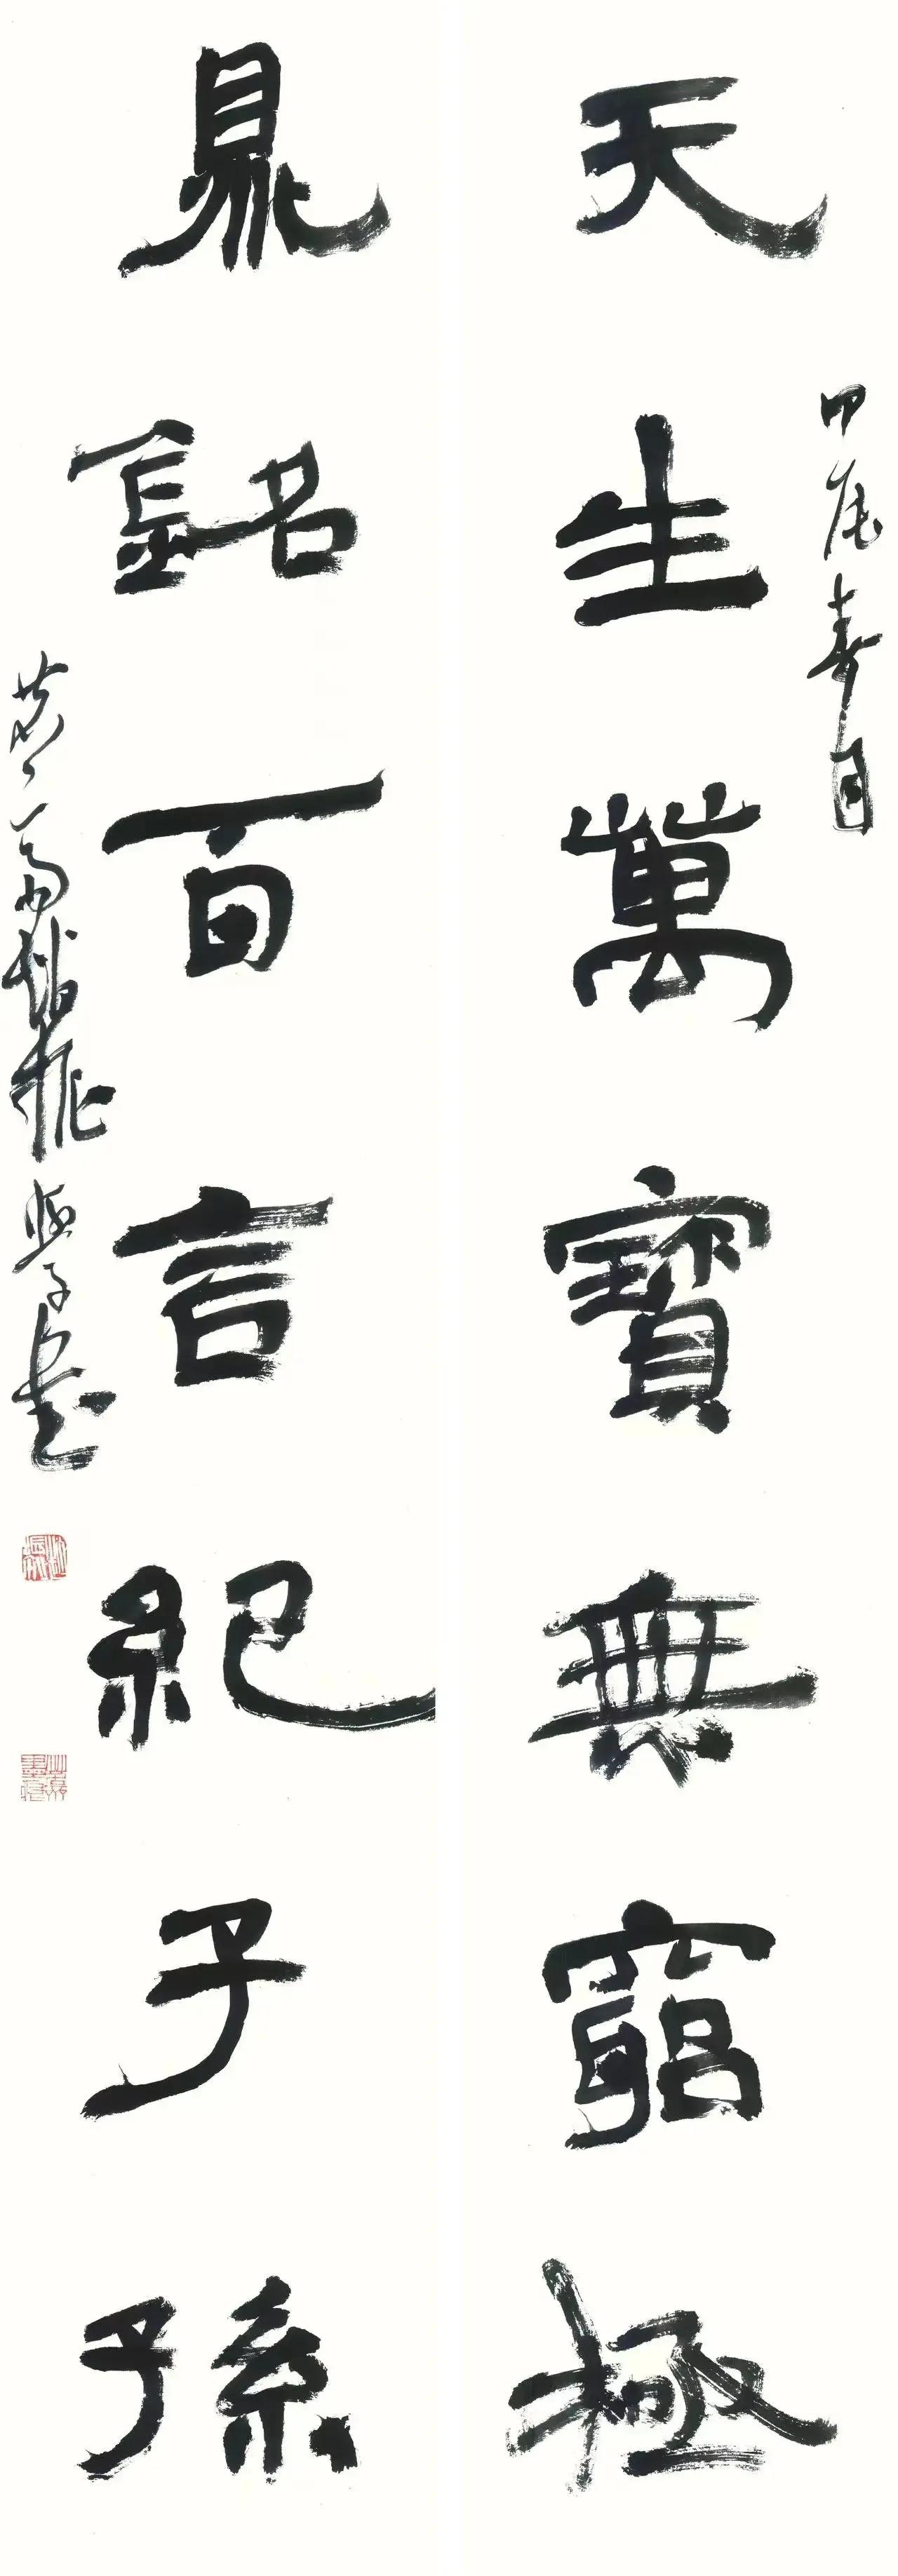 天生萬寳無窮極
甲辰春月
鼎銘百言紀子孫